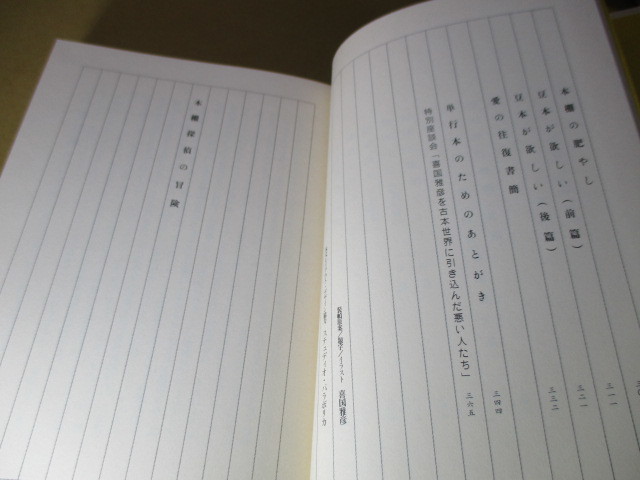 本棚の肥やし 三一一
豆本が欲しい(前篇) 三二一
豆本が欲しい(後篇) 三三二
愛の往復書簡
単行本のためのあとがき 三四四
特別座談会「喜国雅彦を古本世界に引き込んだ悪い人たち」 三六五
喜国雅彦
スタュディオ・パラボリカ
本棚探偵の冒険